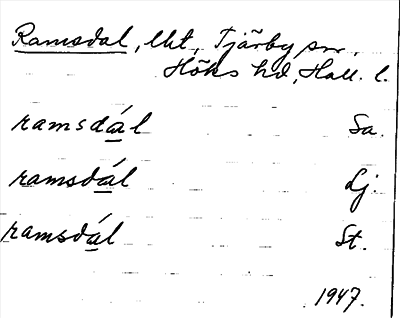 Ramsdal, lht, Tjärby sn.
Höks hd, Hall. l.
ramsdál Sa.
ramsdál Lj.
ramsdál St.
1947.